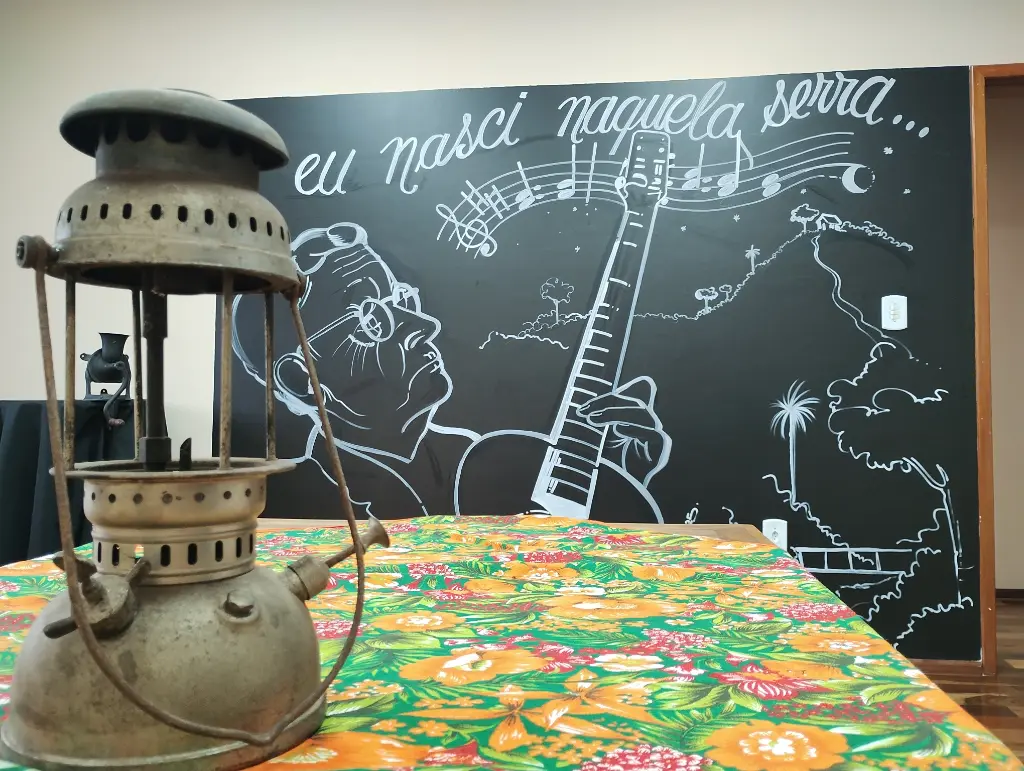 eu nasci naquela serra...